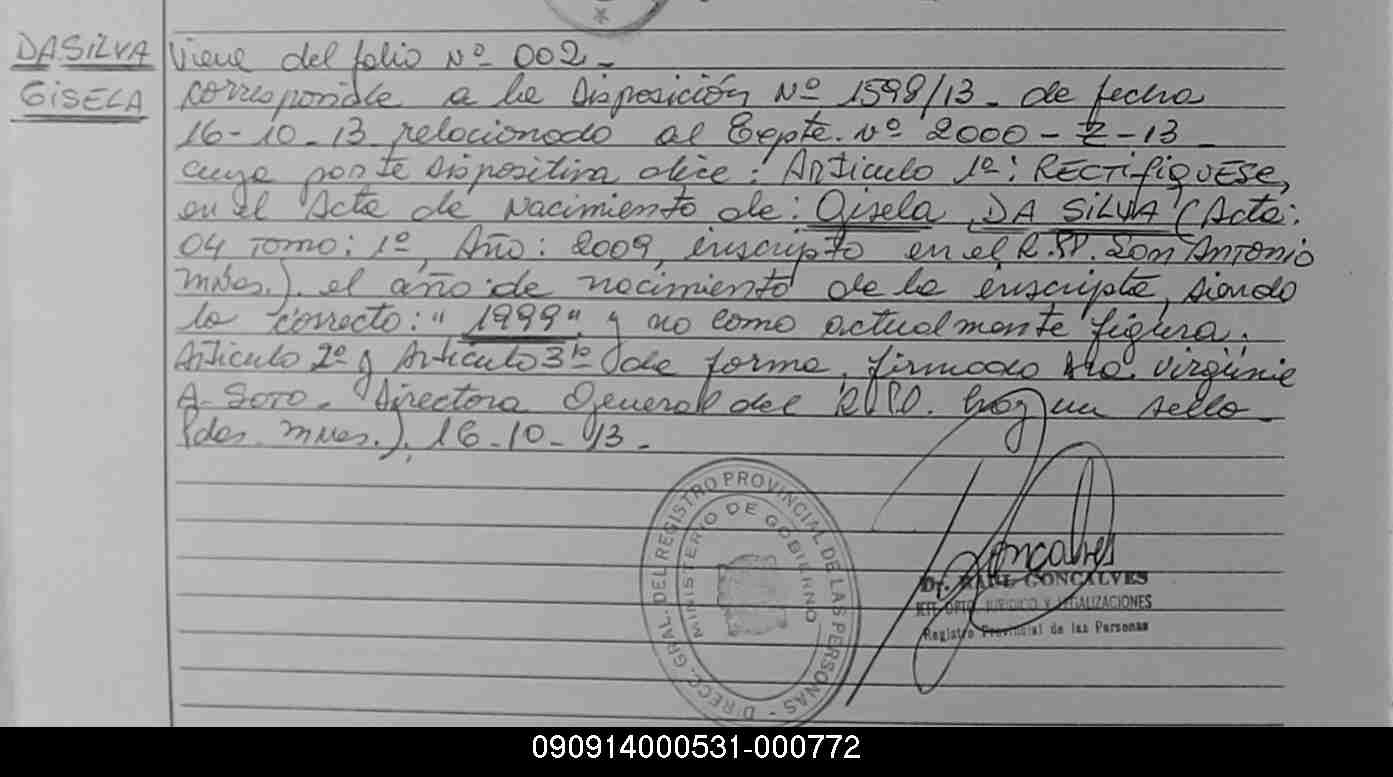 DA SILVA
GISELA
Viene del folio Nº 002.-
corresponde a la Disposición Nº 1598/13- de fecha
16-10-13 relacionado al Expte. nº 2000-Z-13-
cuya parte Dispositiva dice: Articulo 1º: RECTIFIQUESE,
en el Acta de Nacimiento de: Gisela DA SILVA (Acta:
04 Tomo: 1º, Año: 2009, inscripto en el R.P. San Antonio
Mnes.). el año de nacimiento de la inscripta, siendo
lo correcto: "1999" y no como actualmente figura.
Articulo 2º y Articulo 3º de forma. firmado Dra. Virginie
A. Soto. Directora General del R.P.P. hay un sello-
Pdas. Mnes.). 16-10-13-
DIRECC. GRAL. DEL REGISTRO PROVINCIAL DE LAS PERSONAS -
MINISTERIO DE GOBIERNO
Goncalves
Dr. RAUL GONCALVES
JEFE DPTO. JURIDICO Y LEGALIZACIONES
Registro Provincial de las Personas
090914000531-000772